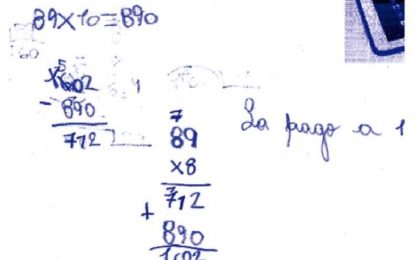 89×10=890
1602
- 890
712
7
89
×8
712
+
890
1602
La pago a 1